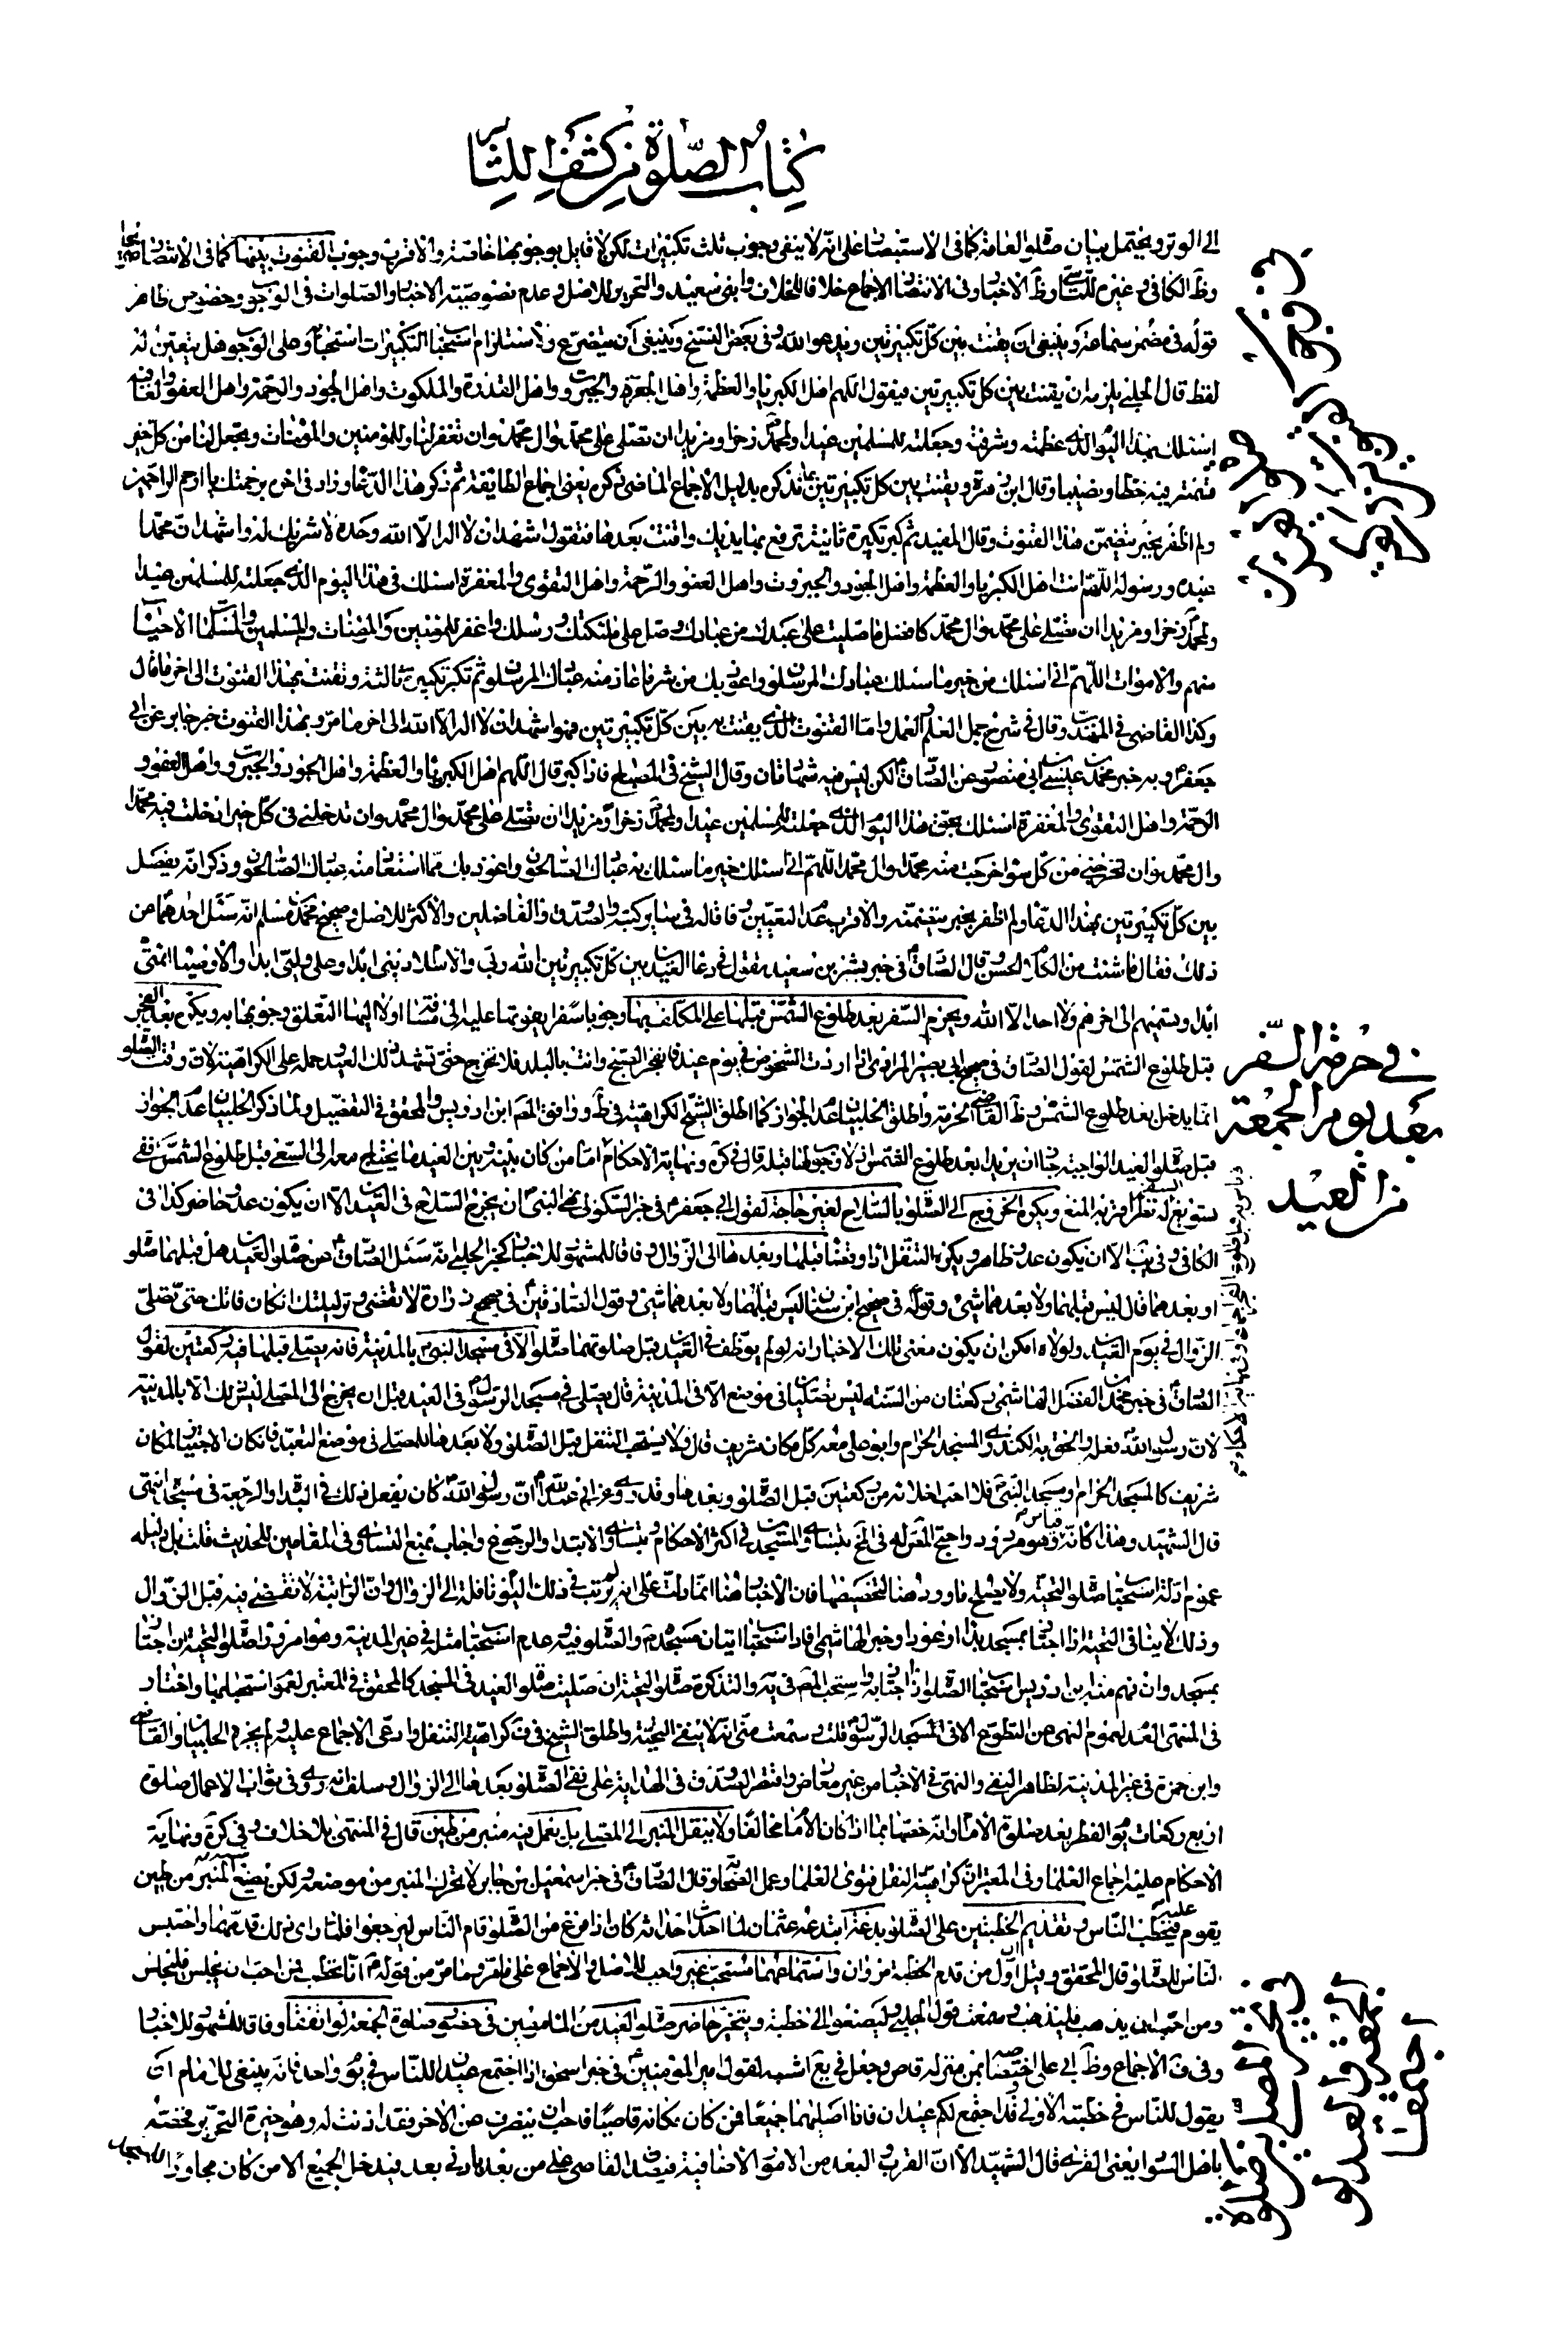 كتاب الصلوة من كشف اللثام
الى الوتر ويحتمل بيان صلوة العامة كما في الاستبصار على انه لا ينفي وجوب ثلث تكبيرات لكن لا قايل بوجوبها خاصة والاقرب وجوب القنوت بينها كما في الانتصار
وظ الكافي وغيره للتاسي وظ الاخبار وفي الانتصار الاجماع خلافا للخلاف وابني سعيد والتحرير للاصل وعدم نصوصية الاخبار والصلوات في الوجوب وخصوص ظاهر
قوله في مضمر سماعة وينبغي ان يقنت بين كل تكبيرتين ويدعو الله وفي بعض النسخ وينبغي ان يتضرع ولاستلزام استحباب التكبيرات استحبابه وعلى الوجوب هل يتعين له
لفظ قال الحلبي يلزمه ان يقنت بين كل تكبيرتين فيقول اللهم اهل الكبرياء والعظمة واهل العزة والجبروت واهل القدرة والملكوت واهل الجود والرحمة واهل العفو والعافية
اسئلك بهذا اليوم الذي عظمته وشرفته وجعلته للمسلمين عيدا ولمحمد ص ذخرا ومزيدا ان تصلي على محمد وال محمد وان تغفر لنا وللمؤمنين والمؤمنات وتجعل لنا من كل خير
قسمت فيه حظا ونصيبا وقال ابن زهرة ويقنت بين كل تكبيرتين بما نذكره بدليل الاجماع الماضي ذكره يعني اجماع الطايفة ثم ذكر هذا الدعا وزاد في اخره برحمتك يا ارحم الراحمين
ولم اظفر بخبر يتضمن هذا القنوت وقال المفيد ثم كبر تكبيرة ثانية ترفع بها يديك واقنت بعدها فتقول اشهد ان لا اله الا الله وحده لا شريك له واشهد ان محمدا
عبده ورسوله اللهم انت اهل الكبرياء والعظمة واهل الجود والجبروت واهل العفو والرحمة واهل التقوى والمغفرة اسئلك في هذا اليوم الذي جعلته للمسلمين عيدا
ولمحمد ذخرا ومزيدا ان تصلي على محمد وال محمد كافضل ما صليت على عبد من عبادك وصل على ملئكتك ورسلك واغفر للمؤمنين والمؤمنات والمسلمين والمسلمات الاحياء
منهم والاموات اللهم اني اسئلك من خير ما سئلك عبادك المرسلون واعوذ بك من شر ما عاذ منه عبادك المرسلون ثم تكبر تكبيرة ثالثة وتقنت بهذا القنوت الى اخر ما قال
وكذا القاضي في المهذب وقال في شرح جمل العلم والعمل واما القنوت الذي يقنت به بين كل تكبيرتين فهو اشهد ان لا اله الا الله الى اخر ما مر وبهذا القنوت خبر جابر عن ابي
جعفر ع وبه خبر محمد بن عيسى بن ابي منصور عن الصادق ع لكن ليس فيه شهادتان وقال الشيخ في المصباح فاذا كبر قال اللهم اهل الكبرياء والعظمة واهل الجود والجبروت واهل العفو و
الرحمة واهل التقوى والمغفرة اسئلك بحق هذا اليوم الذي جعلته للمسلمين عيدا ولمحمد ذخرا ومزيدا ان تصلي على محمد وال محمد وان تدخلني في كل خير ادخلت فيه محمدا
وال محمد وان تخرجني من كل سوء اخرجت منه محمدا وال محمد اللهم اني اسئلك خير ما سئلك به عبادك الصالحون واعوذ بك مما استعاذ منه عبادك الصالحون وذكر انه يفصل
بين كل تكبيرتين بهذا الدعاء ولم اظفر بخبر يتضمنه والاقرب عدم التعيين وفاقا له في ساير كتبه والصدوق والفاضلين والاكثر للاصل وصحيح محمد بن مسلم انه سئل احدهما عن
ذلك فقال ما شئت من الكلام الحسن وقال الصادق ع في خبر بشر بن سعيد يقول في دعاء العيدين بين كل تكبيرتين الله ربي والاسلام ديني ابدا وعلي وليي ابدا والاوصياء ائمتي
ابدا ويسميهم الى اخرهم ولا احد الا الله ويحرم السفر بعد طلوع الشمس قبلها على المكلف بها وجوبا سفرا يفوتها عليه الى مسافة او لا اليها لتعلق وجوبها به ويكره بعد الفجر
قبل طلوع الشمس لقول الصادق في صحيح ابي بصير المرادي اذا اردت الشخوص في يوم عيد فانفجر الصبح وانت بالبلد فلا تخرج حتى تشهد ذلك العيد وحمله على الكراهية لان وقت الصلوة
انما يدخل بعد طلوع الشمس وظ القاضي الحرمة واطلق الحلبيان عدم الجواز كما اطلق الشيخ الكراهية في ط ووافق المصنف ابن ادريس والمحقق في التفصيل ولما ذكر الحلبيان عدم الجواز
قبل صلوة العيد الواجبة جاز ان يريدا بعد طلوع الشمس اذ لا وجوب لها قبله قال في كره ونهاية الاحكام اما من كان بينه وبين العيد ما يحتاج معه الى السعي قبل طلوع الشمس ففي
تسويغ السفر له نظر اقربه المنع ويكره الخروج الى الصلوة بالسلاح لغير حاجة لقول ابي جعفر ع في خبر السكوني نهى النبي ان يخرج السلاح في العيدين الا ان يكون عدو حاضر كذا في
الكافي وفي يب الا ان يكون عدو ظاهر ويكره التنفل اذا وقعتا قبلها وبعدها الى الزوال وفاقا للمشهور للاخبار كخبر الحلبي انه سئل الصادق ع عن صلوة العيدين هل قبلهما صلوة
او بعدهما قال ليس قبلهما ولا بعدهما شيء وقوله في صحيح ابن سنان ليس قبلهما ولا بعدهما شيء وقول الصادقين في صحيح زرارة لا تقضي وتر ليلتك ان كان فاتك حتى تصلي
الزوال في يوم العيدين ولولاه امكن ان يكون معنى تلك الاخبار انه لم يوظف في العيدين قبل صلوتهما صلوة الا في مسجد النبي ص بالمدينة فانه يصلي قبلها فيه ركعتين لقول
الصادق ع في خبر محمد بن الفضل الهاشمي ركعتان من السنة ليس تصليان في موضع الا في المدينة قال يصلى في مسجد الرسول ص في العيد قبل ان يخرج الى المصلى ليس ذلك الا بالمدينة
لان رسول الله ص فعله والحق به الكندي المسجد الحرام وابو علي معه كل مكان شريف قال ولا يستحب التنفل قبل الصلوة ولا بعدها للمصلي في موضع التعبد فان كان الاجتياز بالمكان
شريف كالمسجد الحرام ومسجد النبي ص فلا احب اخلائه من ركعتين قبل الصلوة وبعدها وقد روي عن ابي عبد الله ع ان رسول الله ص كان يفعل ذلك في البداة والرجعة في مسجده انتهى
قال الشهيد وهذا كانه قياس وهو مردود واحتج المصنف له في لف بتساوي المسجدين في اكثر الاحكام وبتساوي الابتداء والرجوع واجاب بمنع التساوي في المقامين للحديث قلت بل دليله
عموم ادلة استحباب صلوة التحية ولا يصلح ما ورد هنا لتخصيصها فان الاخبار هنا انما دلت على انه لم يرتب في ذلك اليوم نافلة الى الزوال وان الراتبة لا تقضى فيه قبل الزوال
وذلك لا ينافي التحية اذا اجتاز بمسجد بدأ او عودا وخبر الهاشمي افاد استحباب اتيان مسجده ص والصلوة فيه وعدم استحباب مثله في غير المدينة وهو امر وراء صلوة التحية ان اجتاز
بمسجد وان فهم منه ابن ادريس استحباب الصلوة اذا اجتاز به واستحب المصنف في يه والتذكرة صلوة التحية ان صليت صلوة العيد في المسجد كالمحقق في المعتبر لعموم استحبابها واختار
في المنتهى العدم لعموم النهي عن التطوع الا في مسجد الرسول ص قلت وسمعت مني انه لا ينفي التحية واطلق الشيخ في ف كراهية التنفل وادعى الاجماع عليه ولم يجزه الحلبيان والقاضي
وابن حمزة في غير المدينة لظاهر النفي والنهي في الاخبار من غير معارض واقتصر الصدوق في الهداية على نفي الصلوة بعدها الى الزوال وسلف انه روى في ثواب الاعمال صلوة
اربع ركعات يوم الفطر بعد صلوة الامام وانه خصها بما اذا كان الامام مخالفا ولا ينقل المنبر الى المصلى بل يعمل فيه منبر من طين قال في المنتهى بلا خلاف وفي كره ونهاية
الاحكام عليه اجماع العلماء وفي المعتبر ان كراهية النقل فتوى العلماء وعمل الصحابة وقال الصادق ع في خبر اسمعيل بن جابر لا تحرك المنبر من موضعه ولكن يصنع شبه المنبر من طين
يقوم عليه فيخطب الناس وتقديم الخطبتين على الصلوة بدعة ابتدعه عثمان لما احدث احداثه كان اذا فرغ من الصلوة قام الناس ليرجعوا فلما راى ذلك قدمهما واحتبس
الناس للصلوة قال المحقق وقيل اول من قدم الخطبة مروان واستماعهما مستحب غير واجب للاصل والاجماع على ما في كره وما مر من قوله ص انا نخطب فمن احب ان يجلس فليجلس
ومن احب ان يذهب فليذهب وسمعت قول الحلبي وليصغوا الى خطبته ويتخير حاضر صلوة العيد من المامومين في حضور صلوة الجمعة لو اتفقتا وفاقا للمشهور للاخبار
وفي ف الاجماع وظ ابي علي اختصاصه بمن منزله قاص وجعل في يع اشبه لقول امير المؤمنين ع في خبر اسحق اذا اجتمع عيدان للناس في يوم واحد فانه ينبغي للامام ان
يقول للناس في خطبته الاولى قد اجتمع لكم عيدان فانا اصليهما جميعا فمن كان مكانه قاصيا فاحب ان ينصرف عن الاخر فقد اذنت له وهو خيرة التحرير مخصصه
باهل السواد يعني القرى قال الشهيد الا ان القرب والبعد من الامور الاضافية فيصدق القاصي على من بعد بادنى بعد فيدخل الجميع الا من كان مجاورا
في حرمة السفر
بعد يوم الجمعة
من العيد